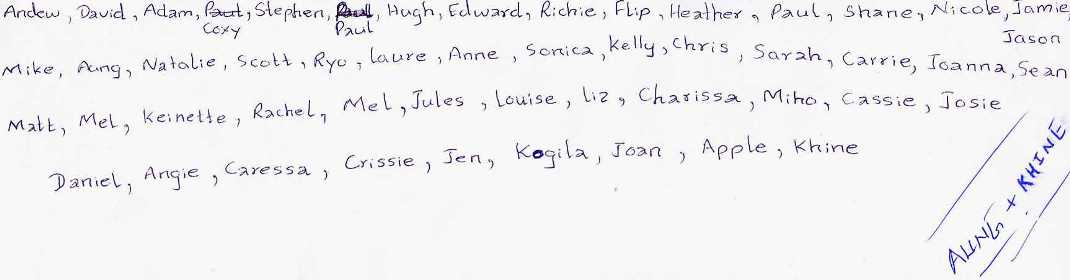 Andew, David, Adam, Paut, Stephen, Paul, Hugh, Edward, Richie, Flip, Heather, Paul, Shane, Nicole, Jamie,
Coxy Paul Jason
Mike, Aung, Natalie, Scott, Ryo, Laure, Anne, Sonica, Kelly, Chris, Sarah, Carrie, Joanna, Sean
Matt, Mel, Keinette, Rachel, Mel, Jules, Louise, Liz, Charissa, Miho, Cassie, Josie
Daniel, Angie, Caressa, Crissie, Jen, Kogila, Joan, Apple, Khine
AUNG + KHINE